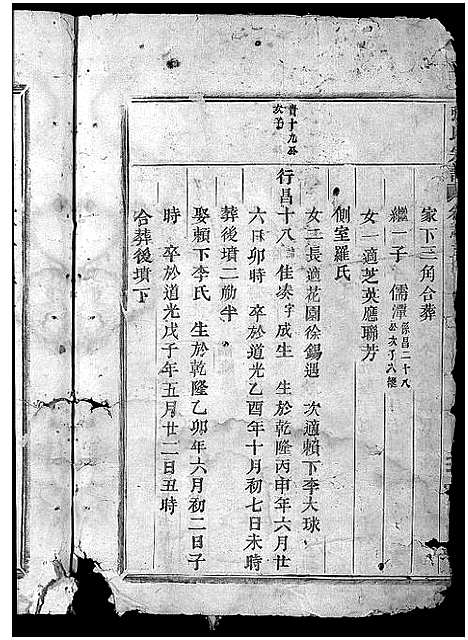 家下三角合葬
繼一子儒潭係昌二十八公次子入繼
女一適芝英應聯芳
側室羅氏
女二長適花園徐錫遇 次適賴下李大球
曹十九公次子
行昌十八 佳湊字成生 生於乾隆丙申年六月廿
六日卯時 卒於道光乙酉年十月初七日未時
葬後墳二勘半
娶賴下李氏 生於乾隆乙卯年六月初二日子
時 卒於道光戊子年五月廿二日丑時
合葬後墳下